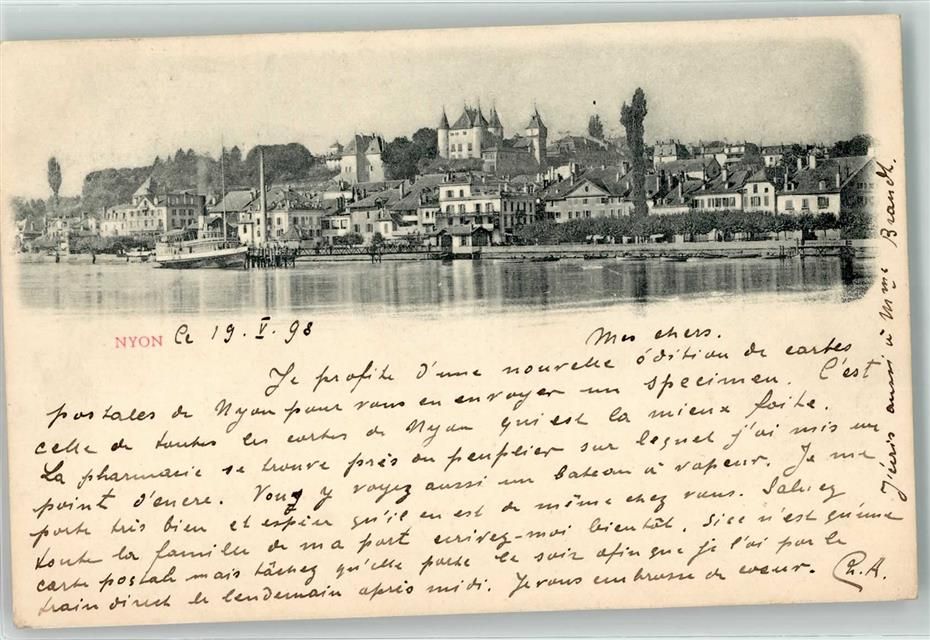 NYON Ce 19.V.98
Mes chers.
Je profite d'une nouvelle édition de cartes
postales de Nyon pour vous en envoyer un specimen. C'est
celle de toutes les cartes de Nyon qui est la mieux faite.
La pharmacie se trouve près du peuplier sur lequel j'ai mis un
point d'encre. Vous y voyez aussi un bateau à vapeur. Je me
porte très bien et espère qu'il en est de même chez vous. Saluez
toute la famille de ma part ecrivez-moi bientôt. Si ce n'est qu'une
carte postale mais tâchez qu'elle parte le soir afin que je l'ai par le
train direct le lendemain après midi. Je vous embrasse de coeur. Ch. A.
J'écris aussi à Mme Brandt.